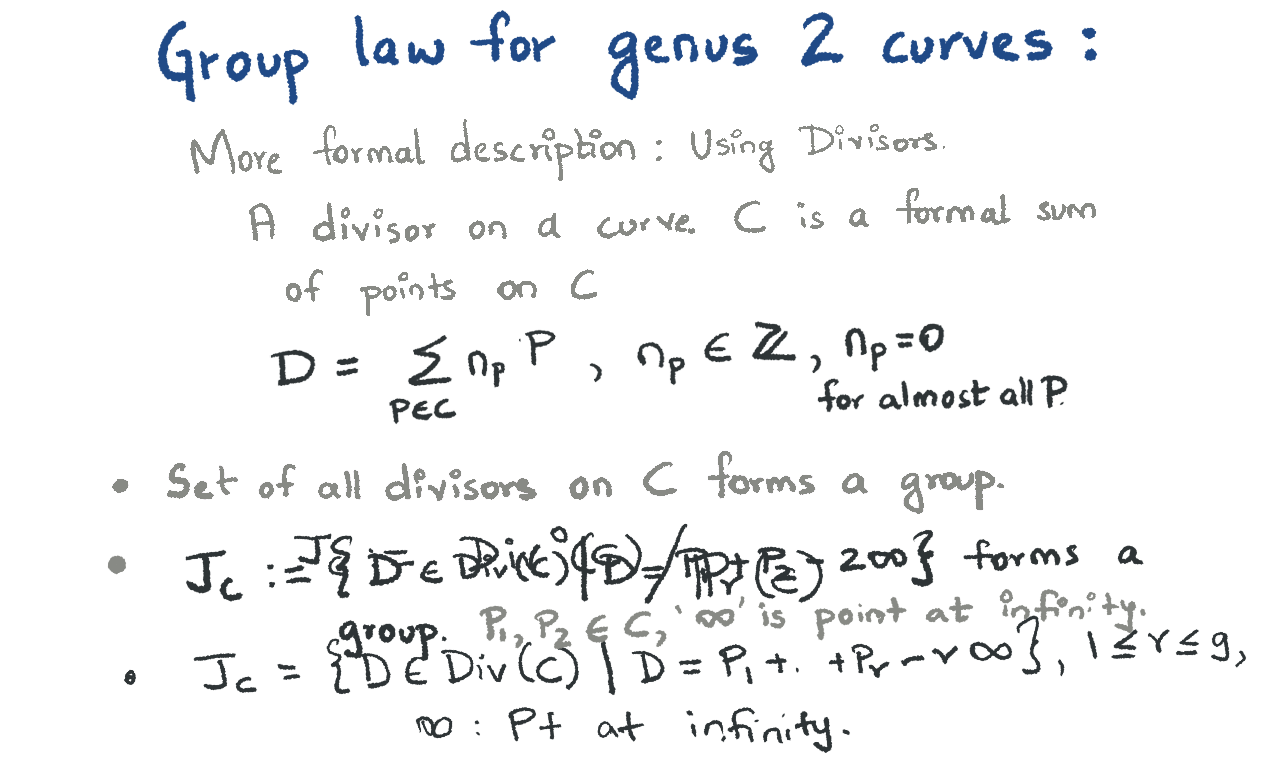 Group law for genus 2 curves :
More formal description : Using Divisors.
A divisor on a curve C is a formal sum
of points on C
D = Σ n_P P , n_P ∈ ℤ, n_P = 0
P∈C for almost all P.
• Set of all divisors on C forms a group.
• J_C := 2∞} forms a
group. P₁, P₂ ∈ C, '∞' is point at infinity.
• J_C = {D ∈ Div(C) | D = P₁ + . + P_r - r ∞}, 1 ≤ r ≤ g,
∞ : Pt at infinity.